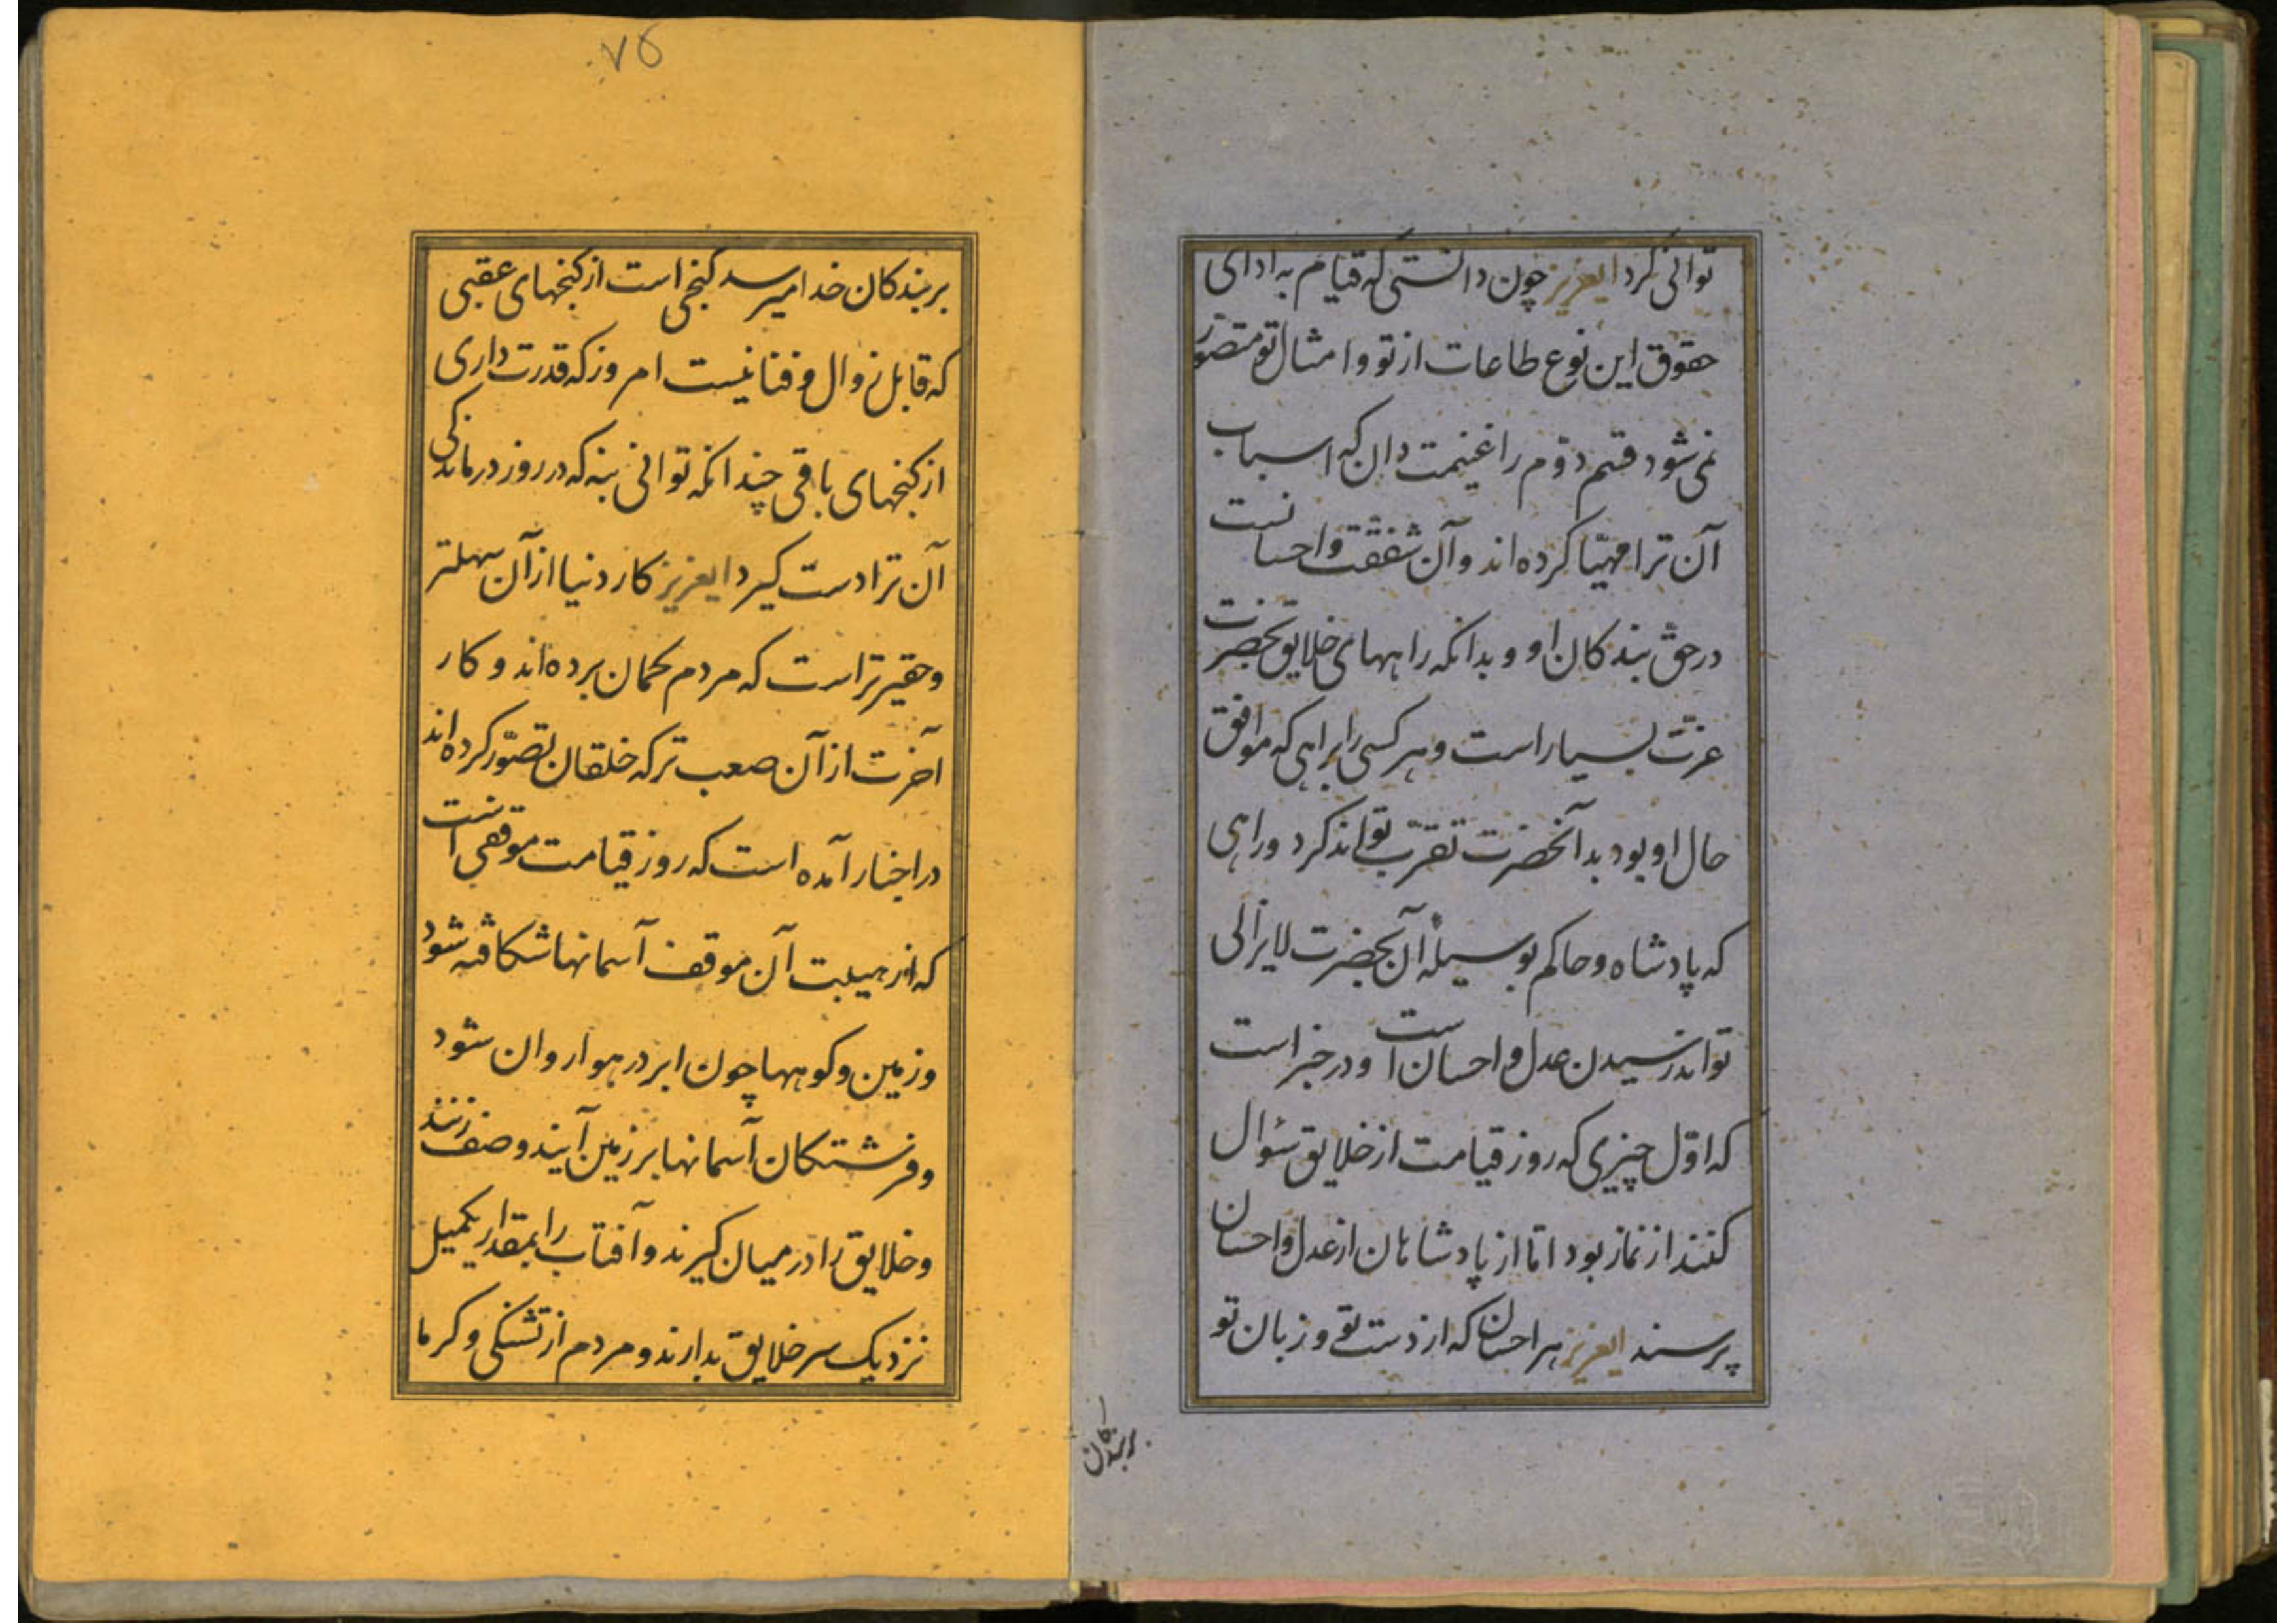 توانی کرد ایعزیز چون دانستی که قیام به ادای
حقوق این نوع طاعات از تو و امثال تو متصوّر
نمی شود قسم دوّم را غنیمت دان که اسباب
آن ترا مهیّا کرده اند و آن شفقت و احسانست
در حقّ بندکان او و بدانکه راههای خلایق بحضرت
عزّت بسیار است و هر کسی را براهی که موافق
حال او بود بدآنحضرت تقرّب تواند کرد و راهی
که پادشاه و حاکم بوسیلهٔ آن بحضرت لایزالی
تواند رسیدن عدل و احسان است و در خبر است
که اوّل چیزی که روز قیامت از خلایق سئوال
کنند از نماز بود امّا از پادشاهان از عدل و احسان
پرسند ایعزیز هر احسان که از دست تو و زبان تو
بربندکان
۷۵
بر بندکان خدا میرسد کنجی است از کنجهای عقبی
که قابل زوال و فنا نیست امروز که قدرت داری
از کنجهای باقی چندانکه توانی بنه که در روز درماندکی
آن ترا دست کیرد ایعزیز کار دنیا از آن سهلتر
و حقیرتر است که مردم کمان برده اند و کار
آخرت از آن صعب تر که خلقان تصوّر کرده اند
در اخبار آمده است که روز قیامت موقفی است
که از هیبت آن موقف آسمانها شکافته شود
و زمین و کوهها چون ابر در هوا روان شود
و فرشتکان آسمانها بر زمین آیند و صف زنند
و خلایق را در میان کیرند و آفتاب را بمقدار یکمیل
نزدیک سر خلایق بدارند و مردم از تشنکی و کرما